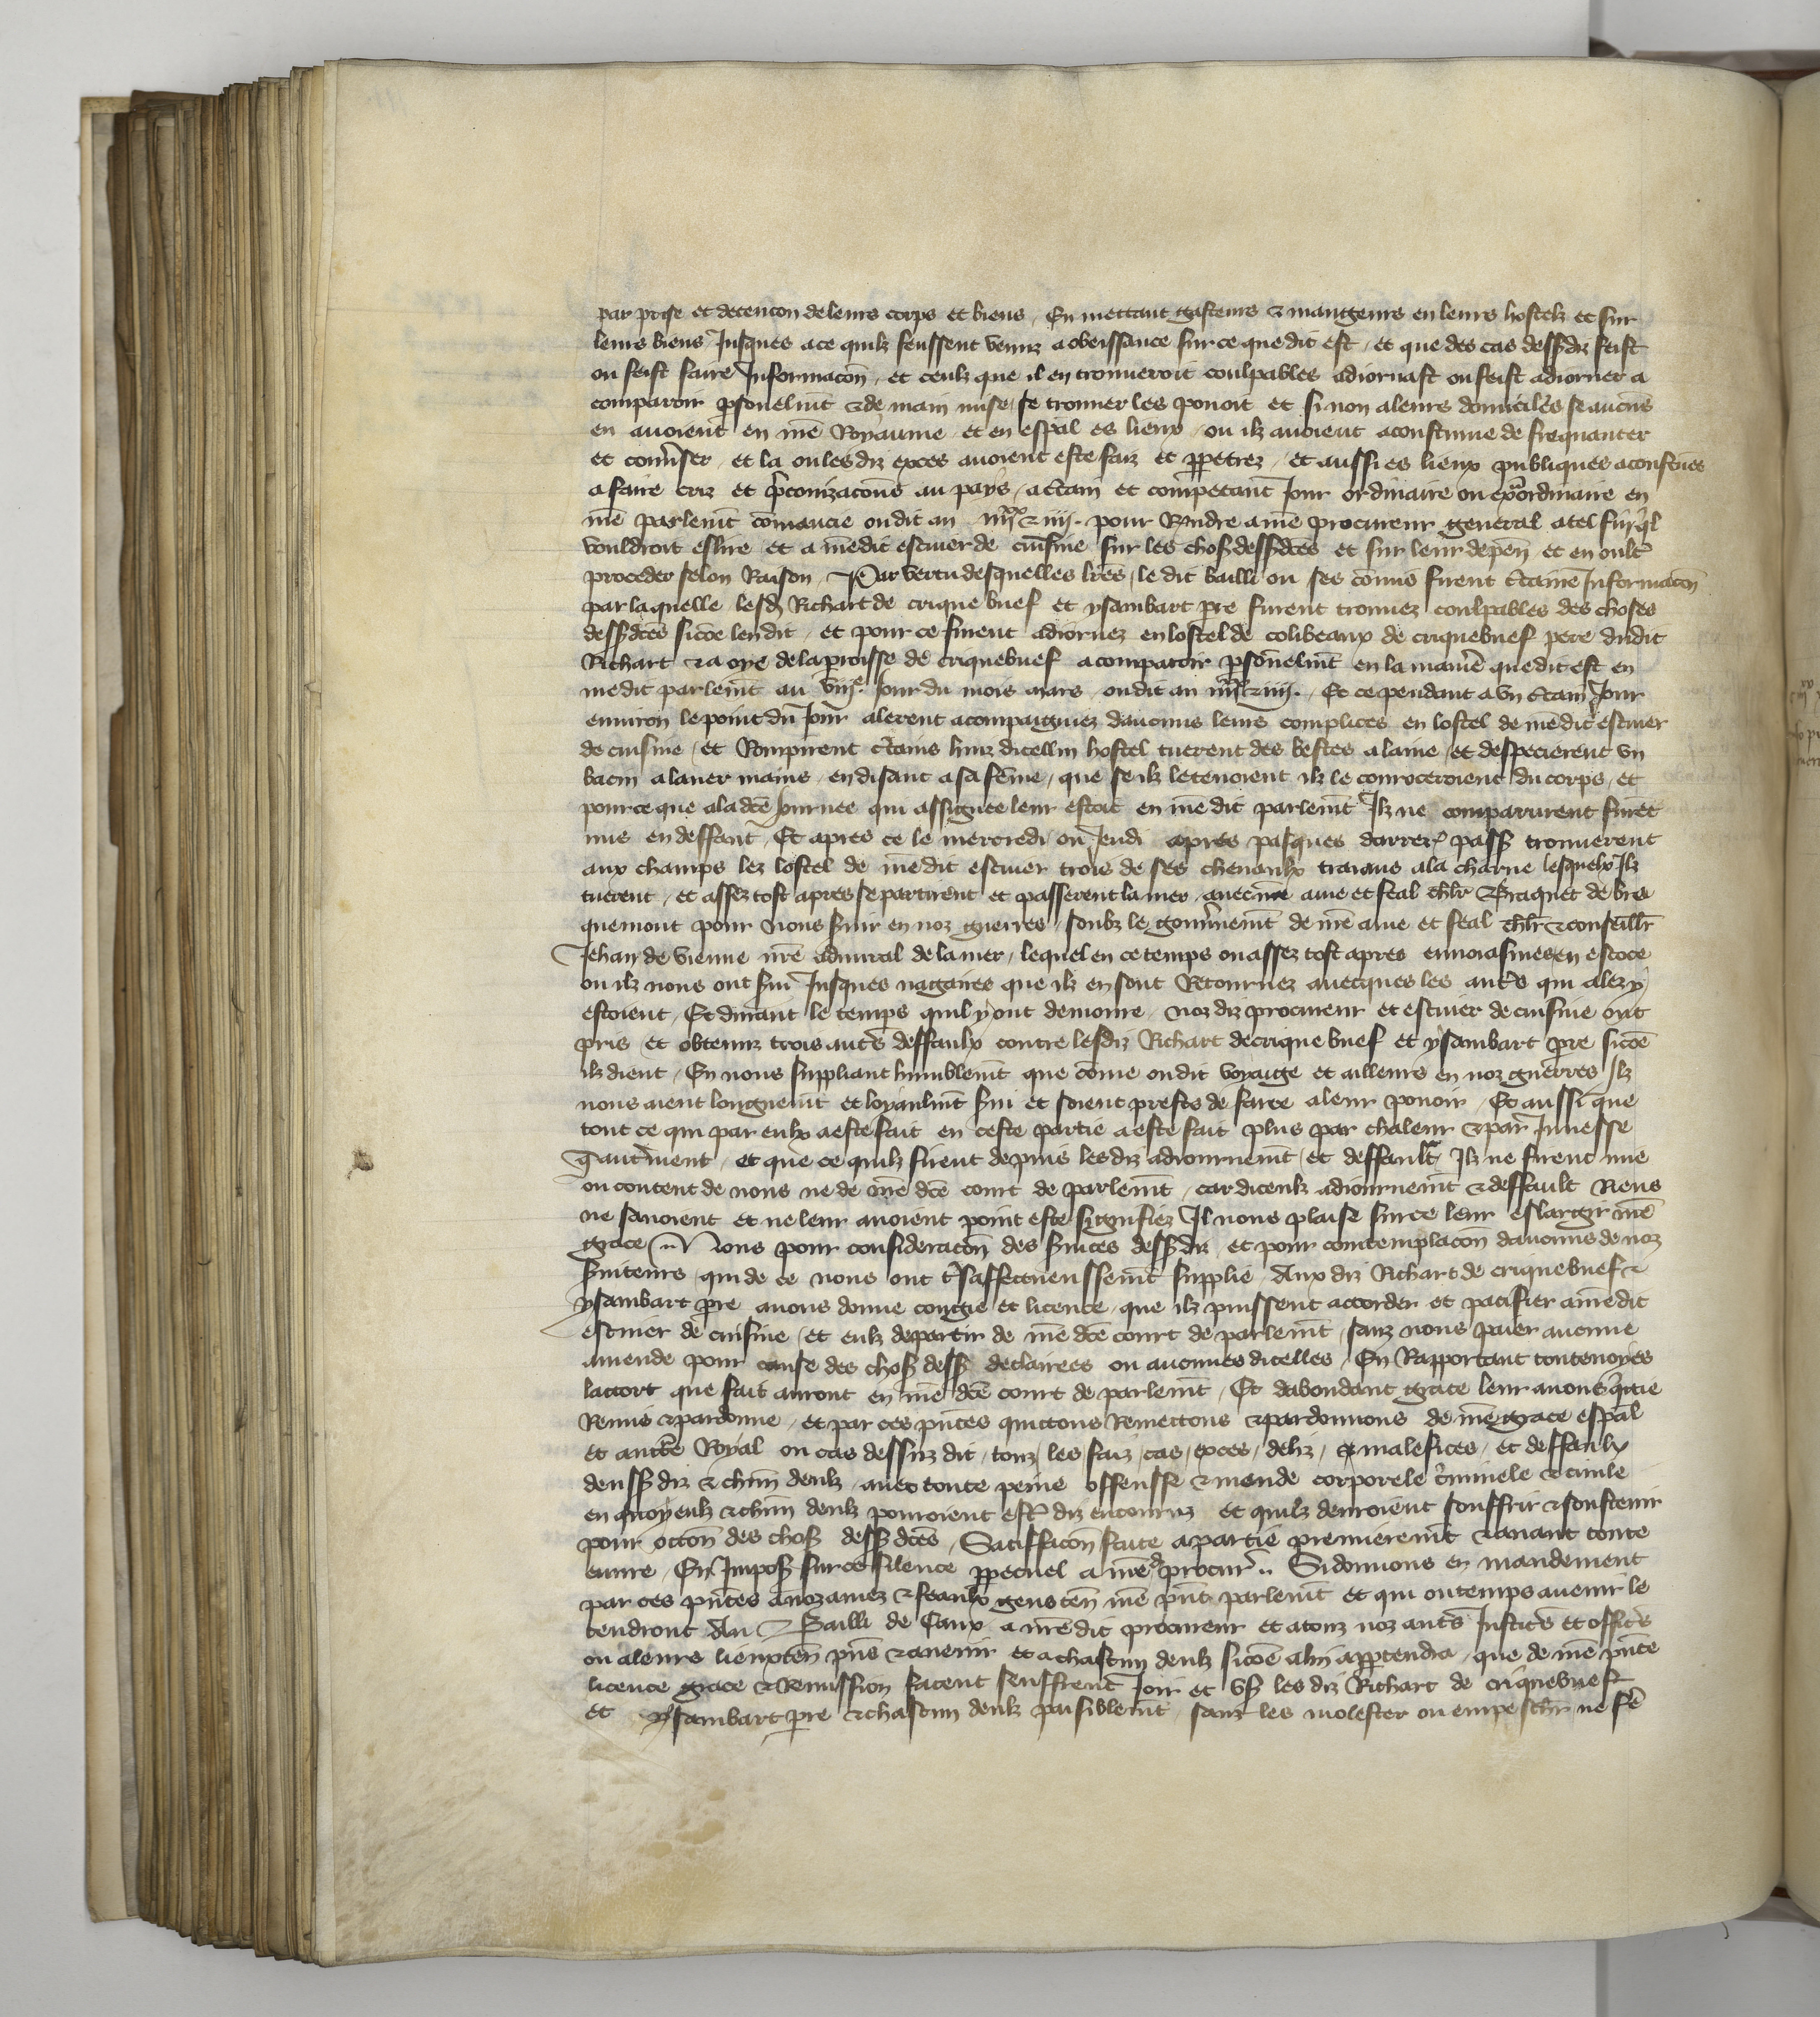 par prise et detencon de leurs corps et biens En mettant gasteurs & mangeurs en leurs hostelz et sur
leurs biens Jusques a ce quilz feussent venuz a obeissance sur ce que dit est et que des cas dessusdiz feist
ou feist faire Informacon et ceulx que il en trouueroit coulpables adiornast ou feist adiorner a
comparoir psonelmt & de main mise se trouuer les pouoit et si non a leurs domiciles se aucus
en auoient en nre Royaume et en espal es lieux ou ilz auoient acoustume de frequanter
et conuser et la ou lesdiz exces auoient este faiz et ppetrez et aussi es lieux publiques acoustues
a faire criz et pconizacons au pays a ctain et competant Jour ordinaire ou exordinaire en
nre parlemt comancie oudit an iiijxx & iiij. pour Rndre a nre procureur general a tel fin ql
vouldroit eslire et a nredit escuier de cuisine sur les chos dessdces et sur leur depen et en oult
proceder selon Raison Par vertu desquelles lres le dit bailli ou ses comis firent ctaine Informacon
par laquelle lesd Richart de crique buef et ysambart pre furent trouuez coulpables des choses
dessdces sicoe len dit et pour ce furent adiornez en lostel de colibeaux de criquebuef pere dudit
Richart & a oye de la proisse de criquebuef a comparoir psonelmt en la manie que dit est en
nredit parlemt au viije Jour du mois mars oudit an iiijxx & iiij. Et ce pendant a vn ctain Jour
enuiron le point du Jour alerent acompaigniez daucuns leurs complices en lostel de nredit escuier
de cuisine et Rompirent ctains huiz dicellui hostel tuerent des bestes a laine et despecierent vn
bacin a lauer mains en disant a sa feme que se ilz le tenoient ilz le courroceroient du corps et
pour ce que a la dce Journee qui assignee leur estoit en nre dit parlemt Ilz ne comparurent furet
mis en deffaut Et apres ce le mercredi ou Jeudi apres pasques darrez pass trouuerent
aux champs lez lostel de nredit escuier trois de ses cheuaulx traians a la charue lesquelx Ilz
tuerent et assez tost apres se partirent et passerent la mer auec nre ame et feal chlr Braquet de bra
quemont pour Nous suir en noz guerres soubz le gouuemt de nre ame et feal chlr & conseillr
Jehan de vienne nre admiral de la mer lequel en ce temps ou assez tost apres enuoiasmes en escoce
ou ilz nous ont sui Jusques nagaires que ilz en sont Retournez auecques les auts qui alez y
estoient Et durant le temps quil y ont demoure noz diz procureur et escuier de cuisine ont
pris et obtenuz trois auts deffaulx contre lesdiz Richart de crique buef et ysambart pre sicoe
ilz dient En nous suppliant humblemt que come oudit voyaige et ailleurs en noz guerres Ilz
nous aient longuemt et loyaulmt sui et soient prests de faire a leur pouoir Et aussi que
tout ce qui par eulx a este fait en ceste partie a este fait plus par chaleur & par Junesse
q autrement et que ce quilz firent depuis les diz adiournemt et deffault Ilz ne firent mie
ou content de nous ne de nre dce court de parlemt car diceulx adiournemt & deffault Riens
ne sauoient et ne leur auoient point este signifiez Il nous plaise sur ce leur eslargir nre
grace Nous pour consideracon des suices dessdiz et pour contemplacon daucuns de noz
suiteurs qui de ce nous ont tsaffectueussemt supplie Aux diz Richart de criquebuef &
ysambart pre auons donne congie et licence que ilz puissent accorder et pacifier a nredit
escuier de cuisine et eulx departir de nre dce court de parlemt sanz nous paier aucune
amende pour cause des chos dess declairees ou aucunes dicelles En Rapportant toutesuoies
lacort que fait auront en nre dce court de parlemt Et dabondant grace leur auons quitie
Remis & pardonne et par ces pntes quittons Remettons & pardonnons de nre grace espal
et auctte Royal ou cas dessus dit touz les faiz cas exces deliz & malefices et deffaulx
deussdiz & chun deulx auec toute peine offensse & mende corporele cminele & ciuile
en quoy eulx & chun deulx pourroient est diz encouruz et quilz deuroient souffrir & soustenir
pour occon des chos dessdces Satiffacon fcute a partie premieremt & auant toute
euure En Impos sur ce silence ppetuel a nre d procur Si donnons en mandement
par ces pntes a noz amez & feaulx gens ten nre pnt parlemt et qui ou temps auenir le
tendront Au Bailli de Caux a nredit procureur et a touz noz auts Justicrs et officrs
ou a leurs lieuxten pns & auenir et a chascun deulx sicoe a lui apptendra que de nre pnte
licence grace & Remission facent seuffrent Joir et vs les diz Richart de criquebuef
et ysambart pre & chascun deulx paisiblemt sanz les molester ou empeschr ne se